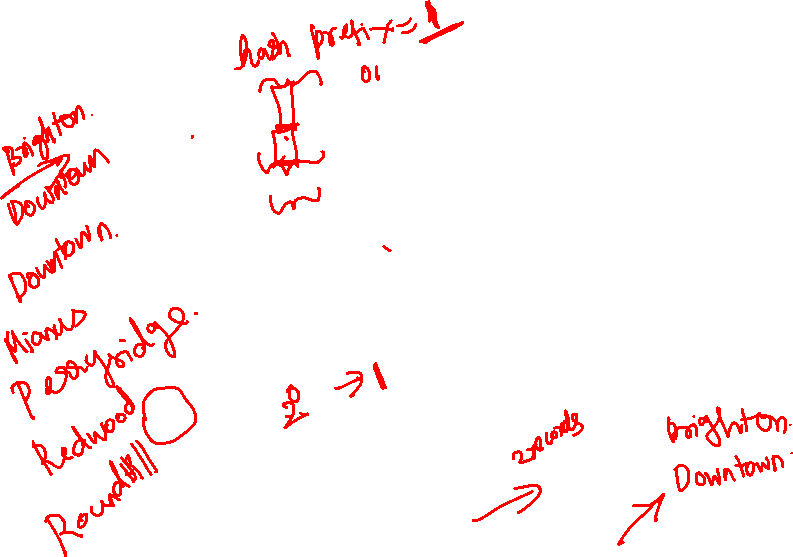 hash prefix = 1
01
Brighton.
Downtown
Downtown.
Mianus
Perryridge.
Redwood
Round Hill
2⁰ → 1
2 records
Brighton.
Downtown.